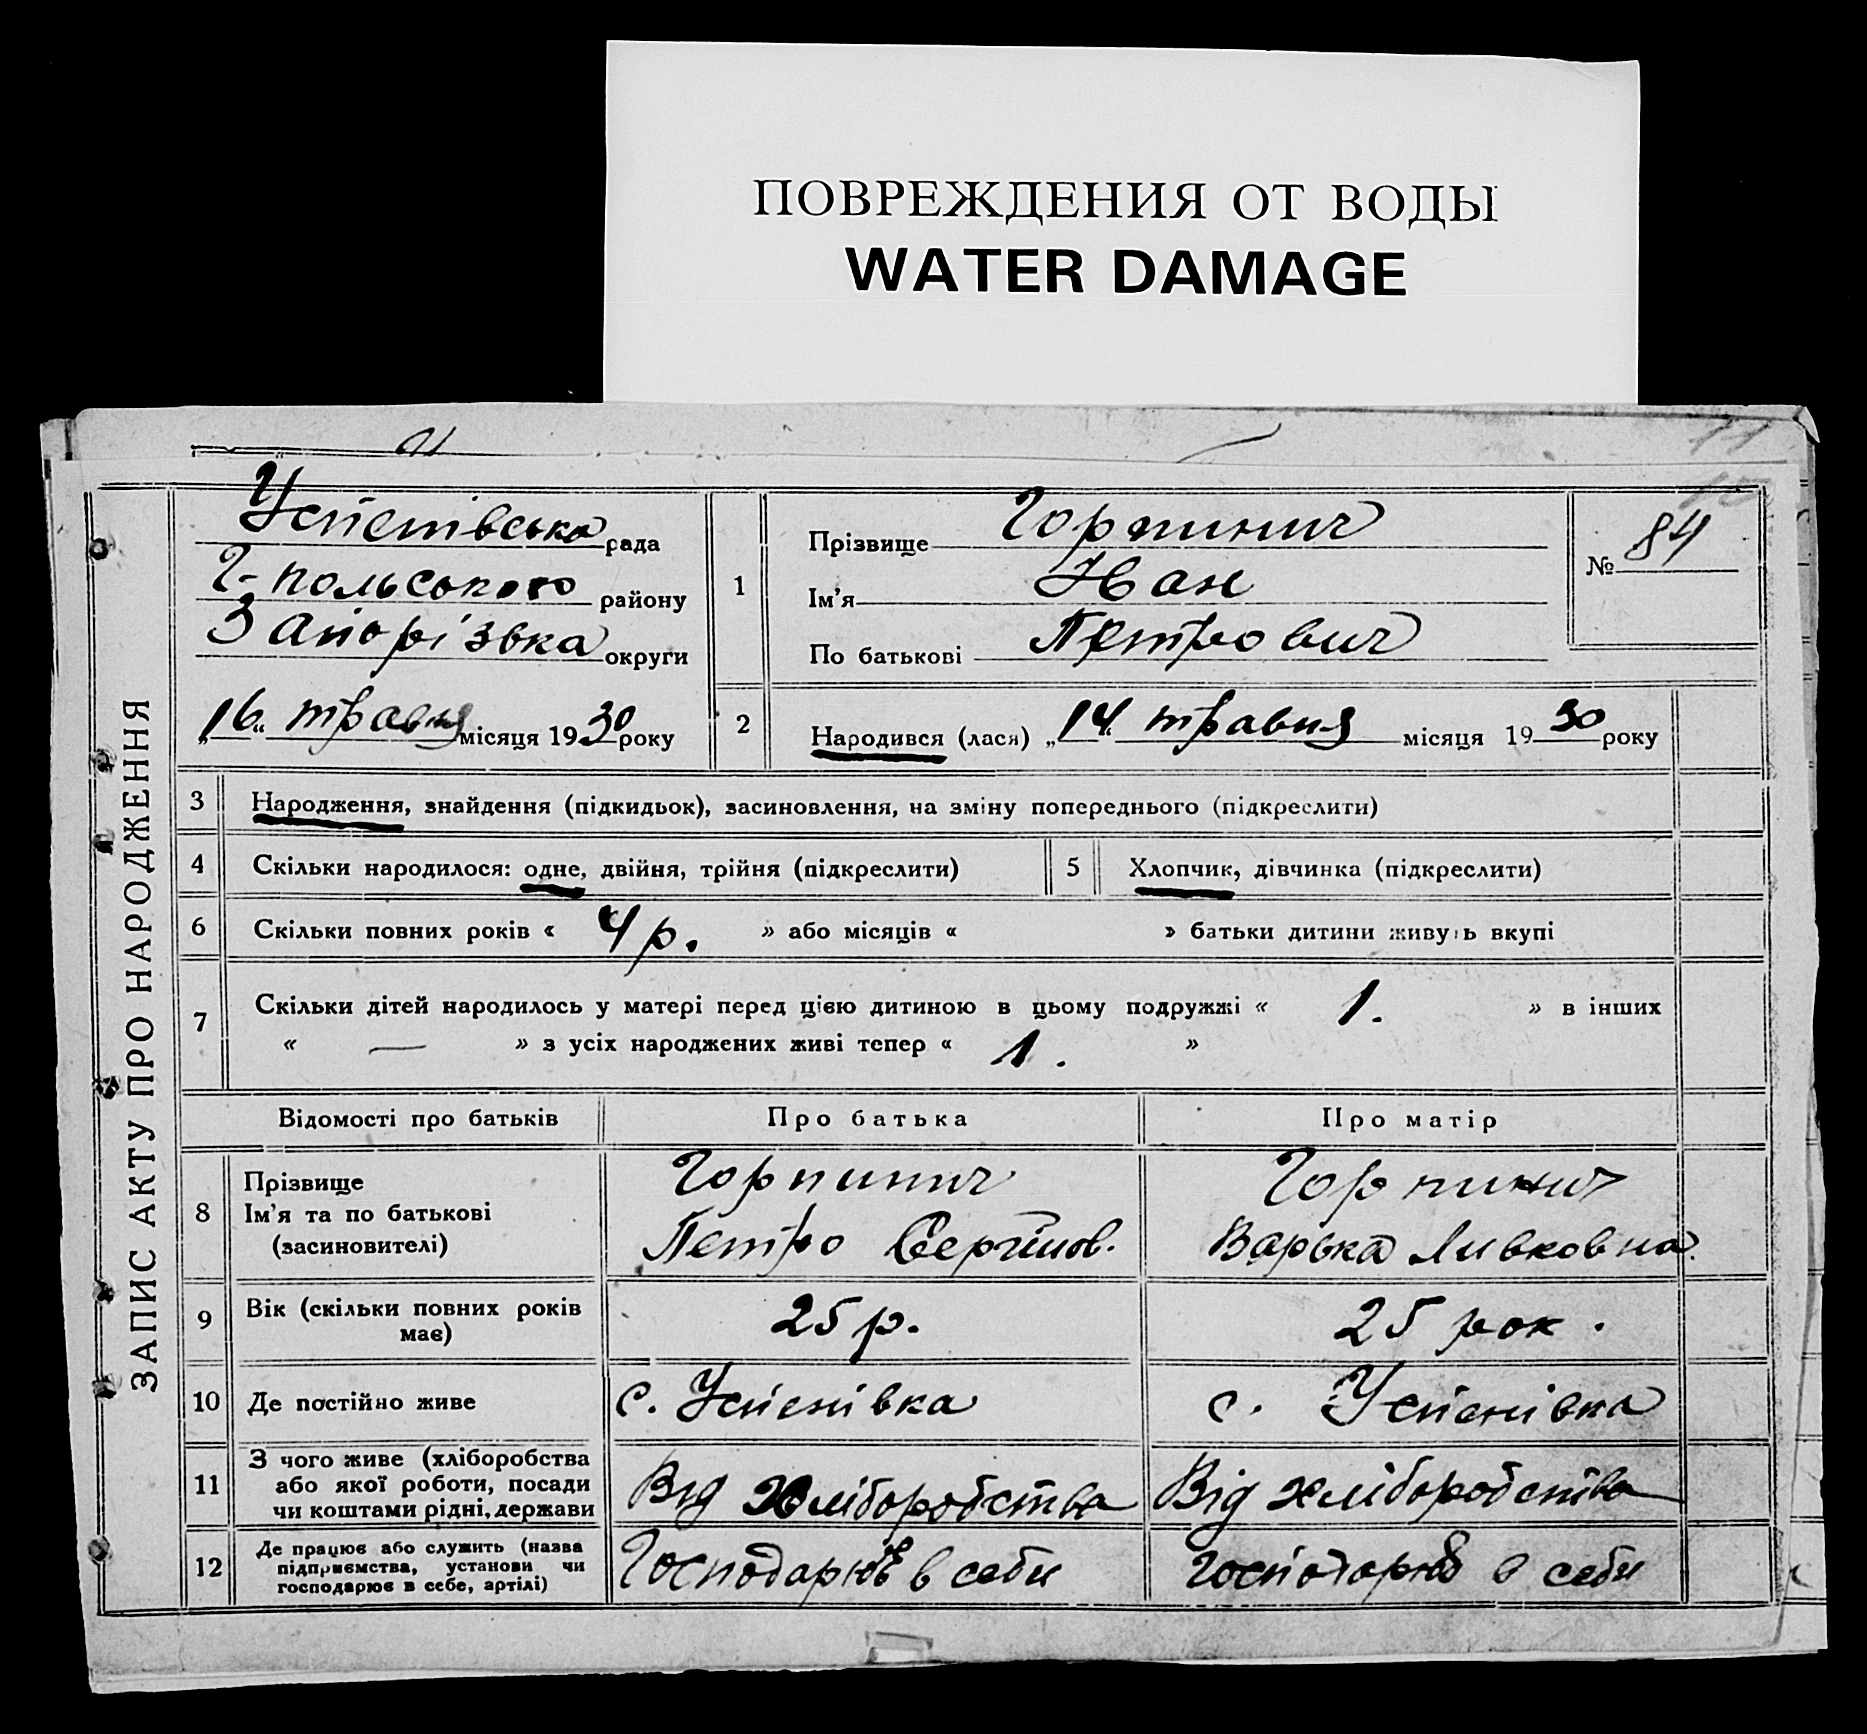 ПОВРЕЖДЕНИЯ ОТ ВОДЫ
WATER DAMAGE
ЗАПИС АКТУ ПРО НАРОДЖЕННЯ
Успенівська рада
Г-польського району
Запорізька округи
„16“ травня місяця 1930 року
1
Прізвище Горпинич
Ім’я Іван
По батькові Петрович
№ 84
2 Народився (лася) „14“ травня місяця 1930 року
3 Народження, знайдення (підкидьок), засиновлення, на зміну попереднього (підкреслити)
4 Скільки народилося: одне, двійня, трійня (підкреслити) 5 Хлопчик, дівчинка (підкреслити)
6 Скільки повних років « 4 р. » або місяців « » батьки дитини живуть вкупі
7 Скільки дітей народилось у матері перед цією дитиною в цьому подружжі « 1. » в інших
« — » з усіх народжених живі тепер « 1. »
Відомості про батьків Про батька Про матір
8 Прізвище Горпинич Горпинич
Ім’я та по батькові Петро Сергійов. ВарькаЛивковна.
(засиновителі)
9 Вік (скільки повних років 25 р. 25 рок.
має)
10 Де постійно живе с. Успенівка с. Успенівка
11 З чого живе (хліборобства
або якої роботи, посади Від хліборобства Від хліборобства
чи коштами рідні, держави
12 Де працює або служить (назва
підприємства, установи чи Господарює в себи Господарює в себи
господарює в себе, артілі)